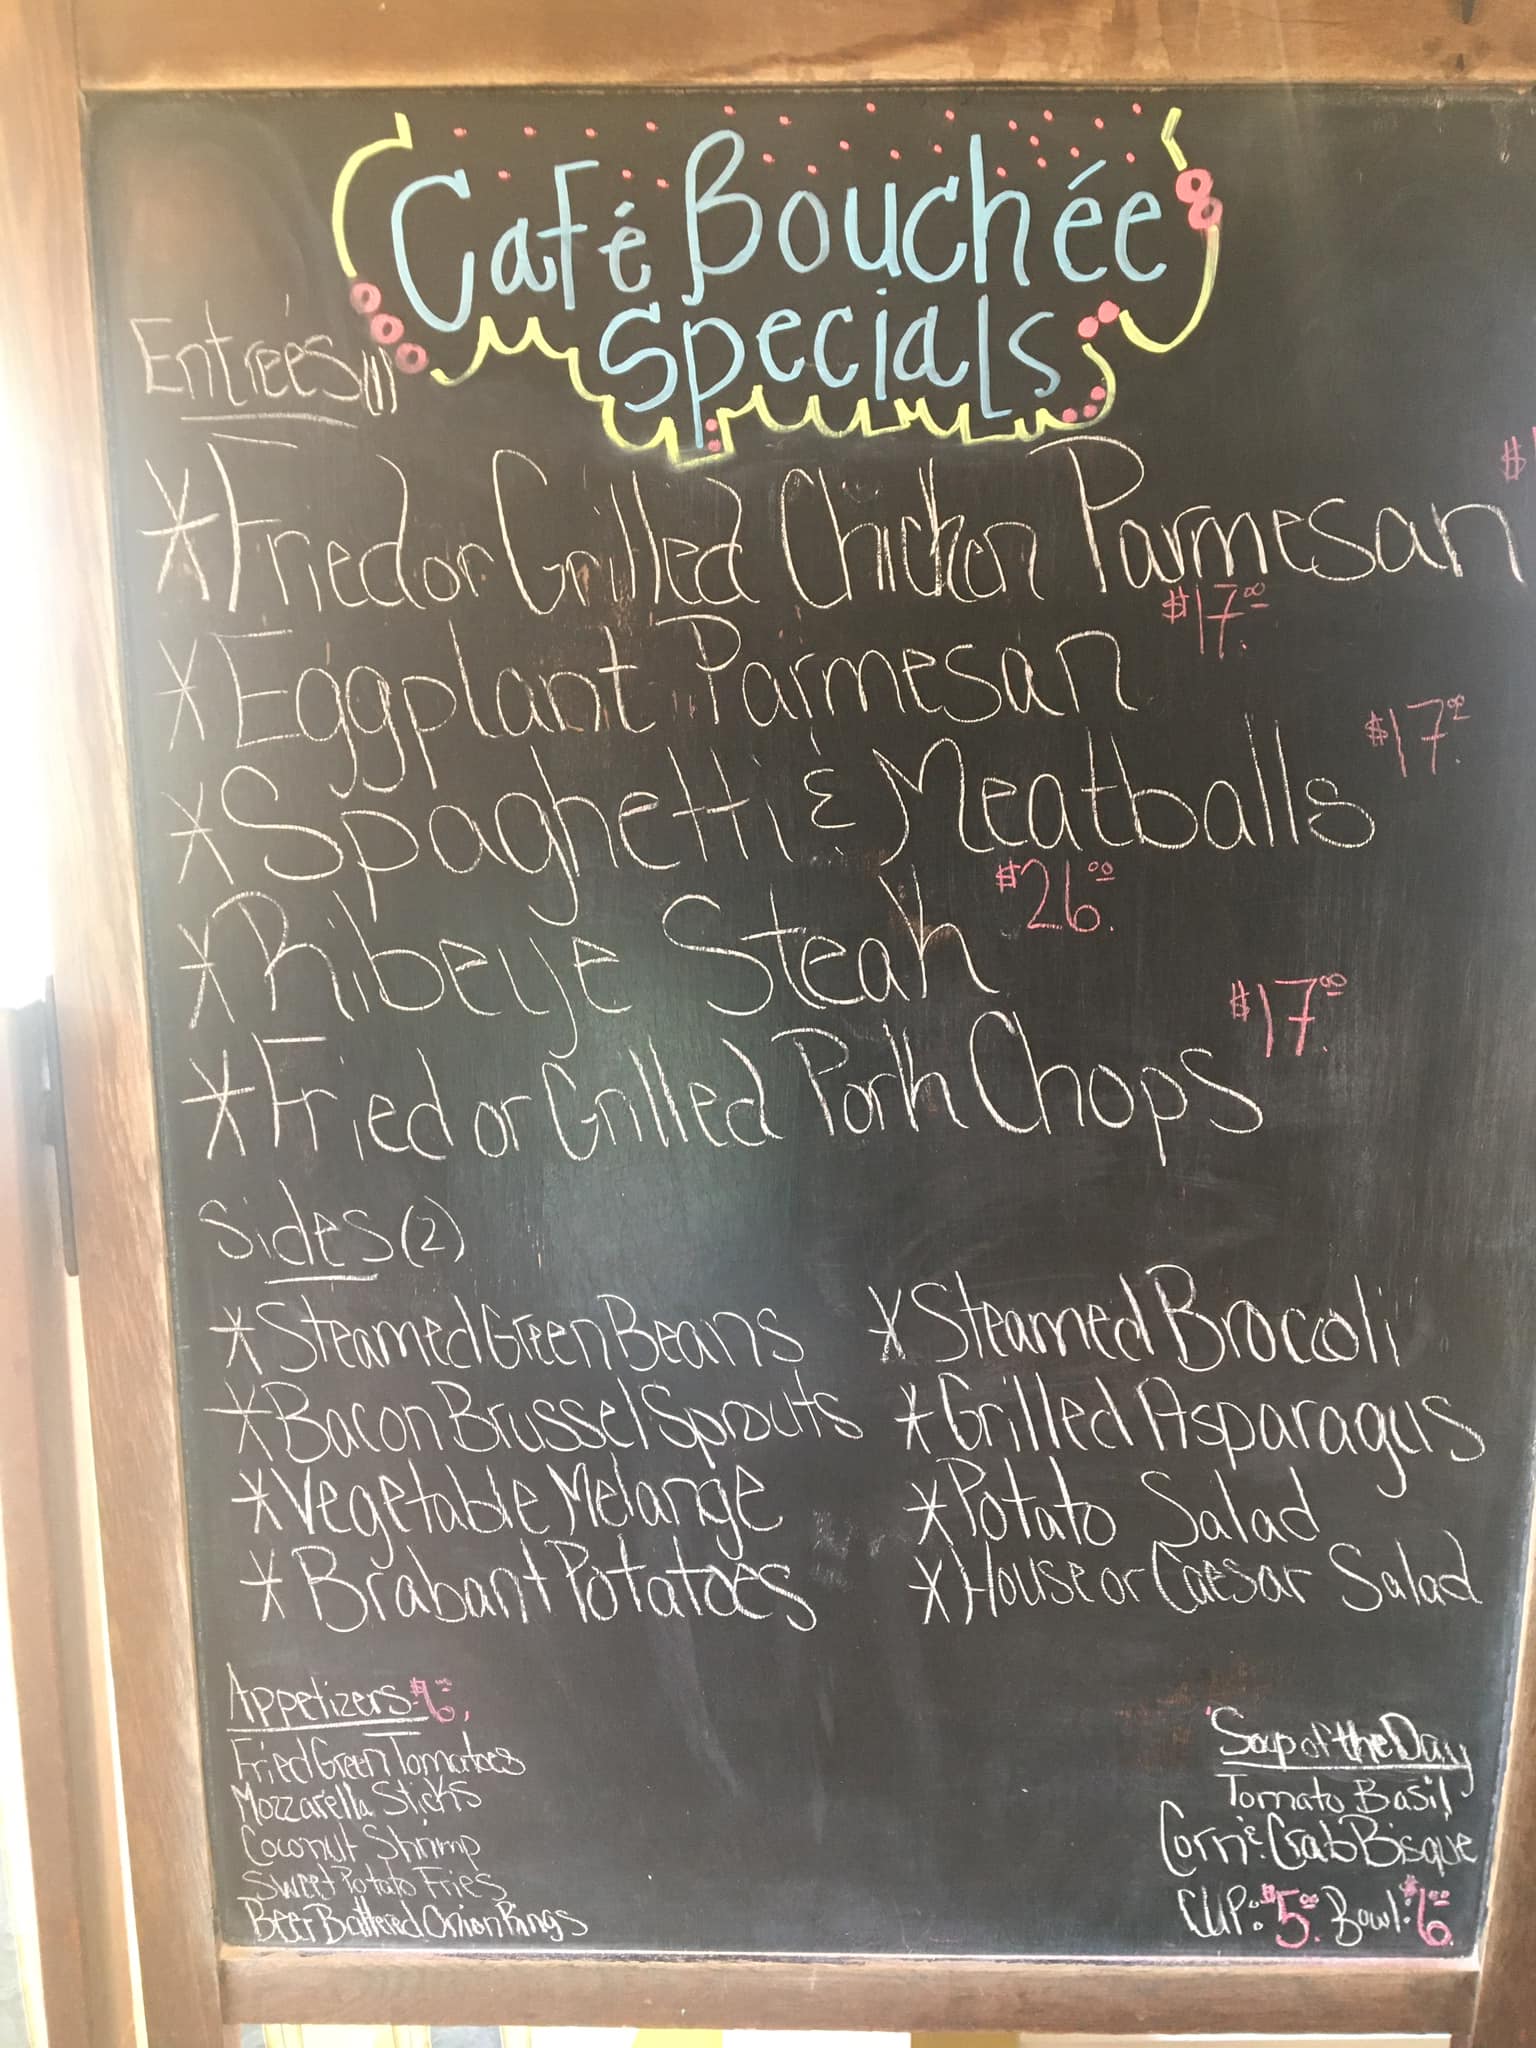 Café Bouchée
Specials
Entrées (1)
*Fried or Grilled Chicken Parmesan
*Eggplant Parmesan $17.00
*Spaghetti & Meatballs $17.00
*Ribeye Steak $26.00
*Fried or Grilled Pork Chops $17.00
Sides (2)
*Steamed Green Beans
*Bacon Brussel Sprouts
*Vegetable Melange
*Brabant Potatoes
*Steamed Brocoli
*Grilled Asparagus
*Potato Salad
*House or Caesar Salad
Appetizers $6.00
Fried Green Tomatoes
Mozzarella Sticks
Coconut Shrimp
Sweet Potato Fries
Beer Battered Onion Rings
Soup of the Day
Tomato Basil
Corn & Crab Bisque
Cup: $5.00 Bowl: $6.00